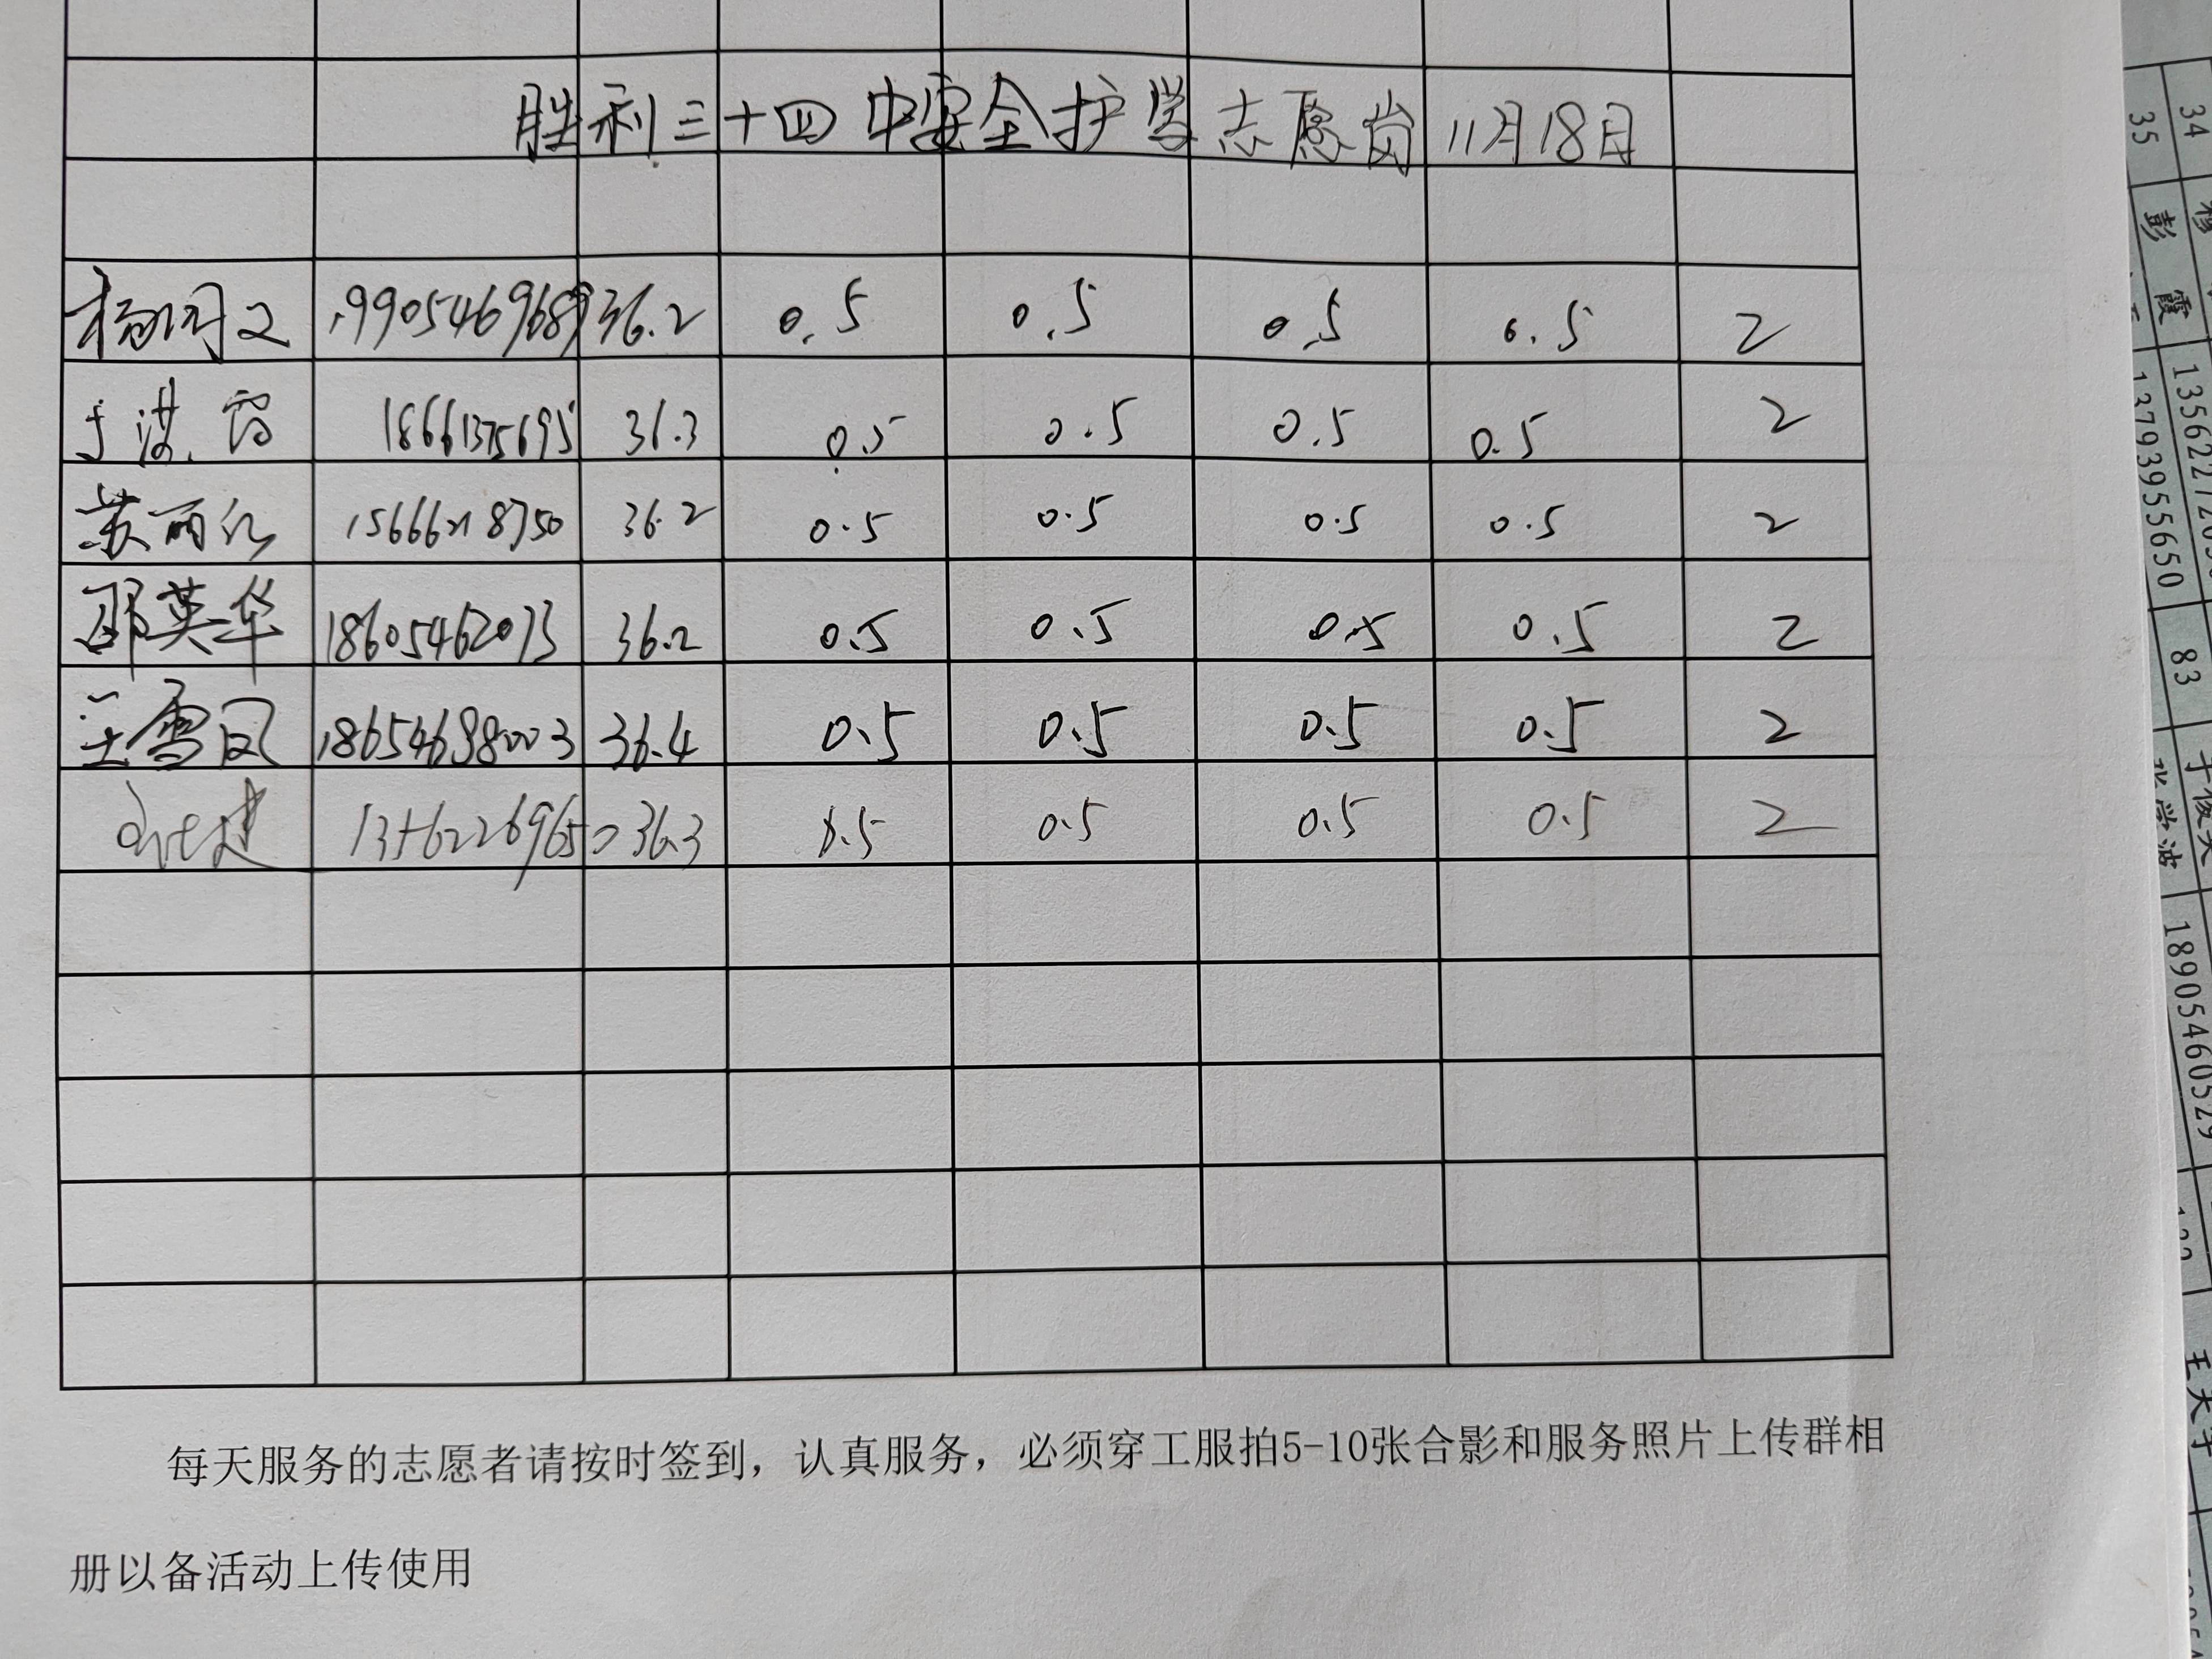 胜利三十四中安全护学志愿岗 11月18日
杨 19905469689 36.2 0.5 0.5 0.5 0.5 2
于洪 18661375695 36.3 0.5 0.5 0.5 0.5 2
苏丽红 36.2 0.5 0.5 0.5 0.5 2
邵英华 18605462073 36.2 0.5 0.5 0.5 0.5 2
王雪凤 18654698003 36.4 0.5 0.5 0.5 0.5 2
13562269650 36.3 0.5 0.5 0.5 0.5 2
每天服务的志愿者请按时签到，认真服务，必须穿工服拍5-10张合影和服务照片上传群相
册以备活动上传使用
34
35 彭霞 13793955650 83
张学波 18905460529
于俊美